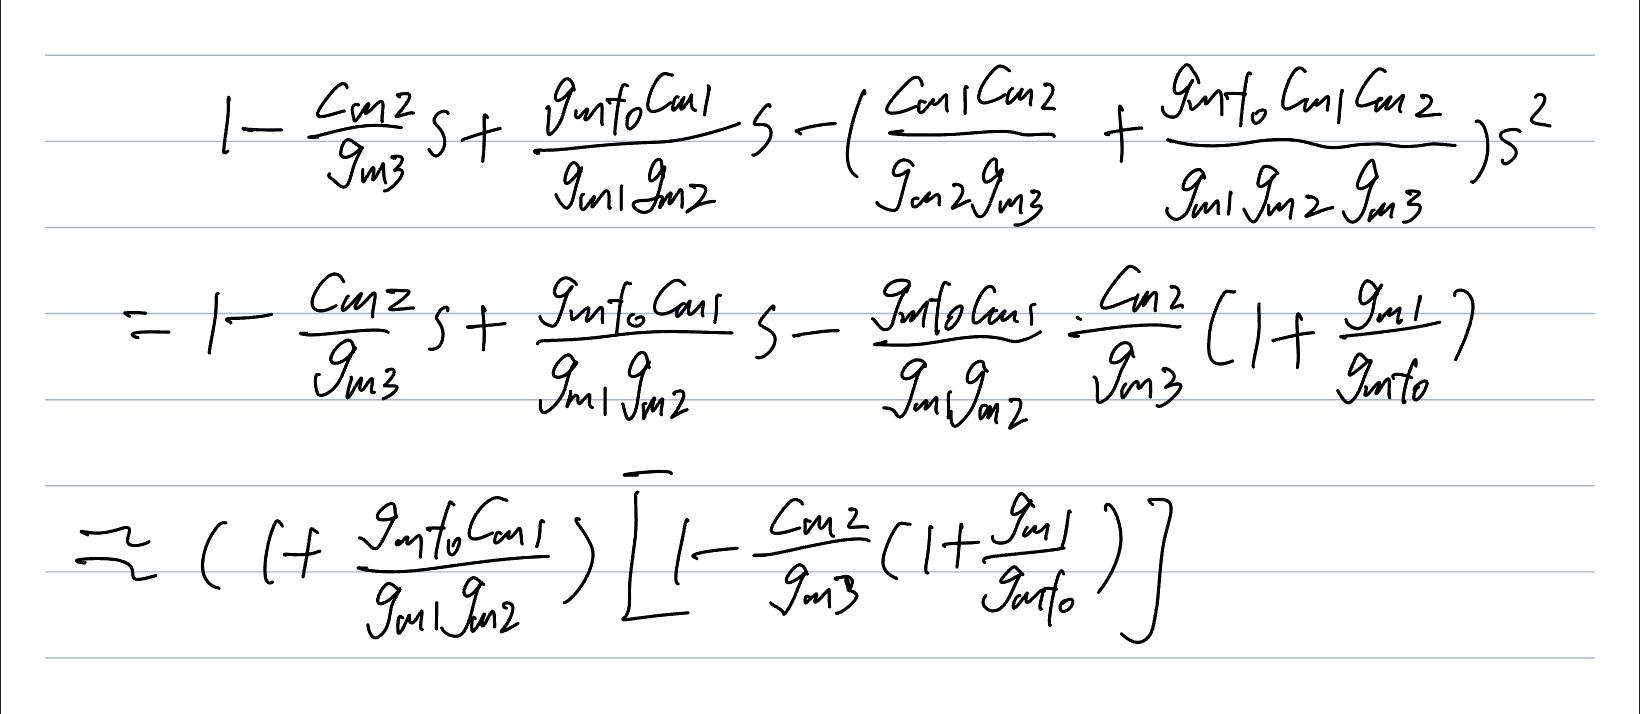 1 - \frac{C_{m2}}{g_{m3}} s + \frac{g_{mf0} C_{m1}}{g_{m1} g_{m2}} s - ( \frac{C_{m1} C_{m2}}{g_{m2} g_{m3}} + \frac{g_{mf0} C_{m1} C_{m2}}{g_{m1} g_{m2} g_{m3}} ) s^2
= 1 - \frac{C_{m2}}{g_{m3}} s + \frac{g_{mf0} C_{m1}}{g_{m1} g_{m2}} s - \frac{g_{mf0} C_{m1}}{g_{m1} g_{m2}} \cdot \frac{C_{m2}}{g_{m3}} ( 1 + \frac{g_{m1}}{g_{mf0}} )
≈ ( 1 + \frac{g_{mf0} C_{m1}}{g_{m1} g_{m2}} ) [ 1 - \frac{C_{m2}}{g_{m3}} ( 1 + \frac{g_{m1}}{g_{mf0}} ) ]